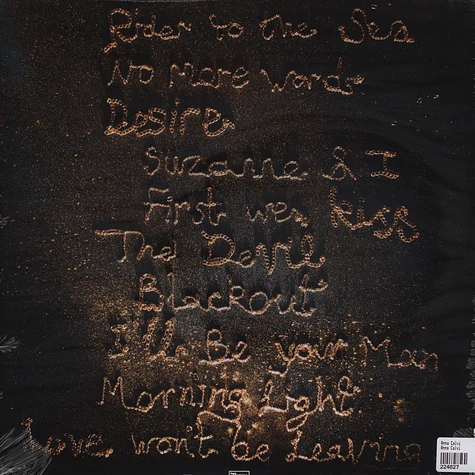 Rider to the Sea
No More Words
Desire
Suzanne & I
First we Kiss
The Devil
Blackout
I'll Be your Man
Morning Light
Love won't be Leaving
Anna Calvi
Anna Calvi
224027